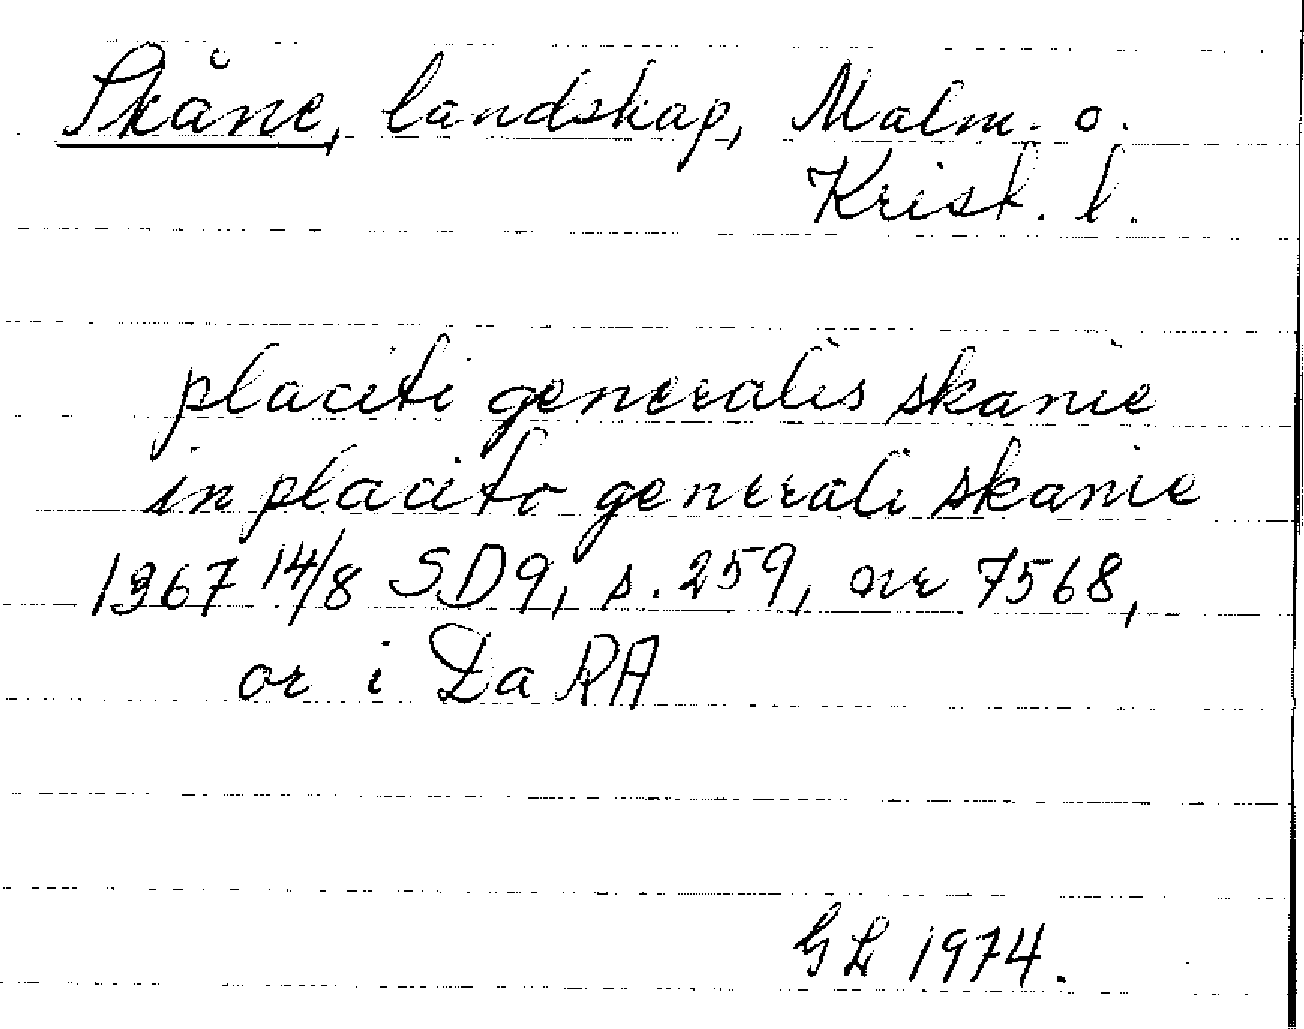 Skåne, landskap, Malm. o.
Krist. l.
placiti generalis skanie
in placito generali skanie
1367 14/8 SD9, s. 259, nr 7568,
or i Da RA
GL 1974.